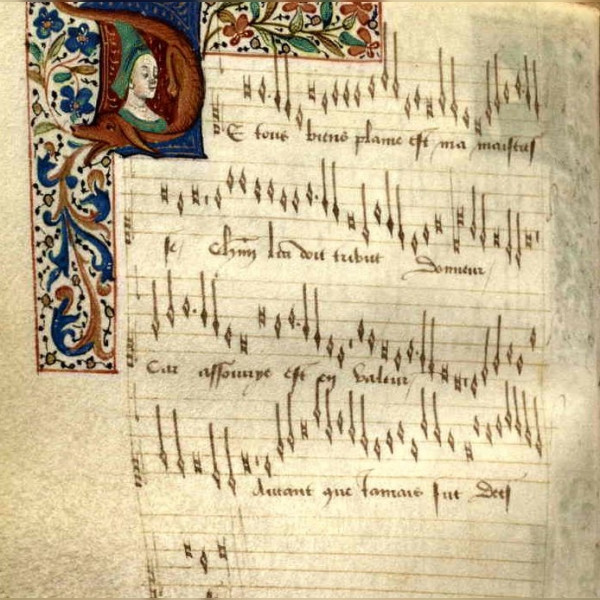 DE tous biens plaine est ma maistres
se Chūn lui doit tribut Donneur
Car assouvye est en valeur
Autant que Jamais fut Dees